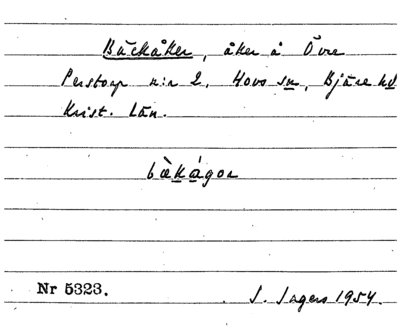 Bäckåker, åker å Övre
Perstorp n:r 2, Hovs sn, Bjäre hd
Krist. Län.
bὲkágor
Nr 5323.
S. Ingers 1954.